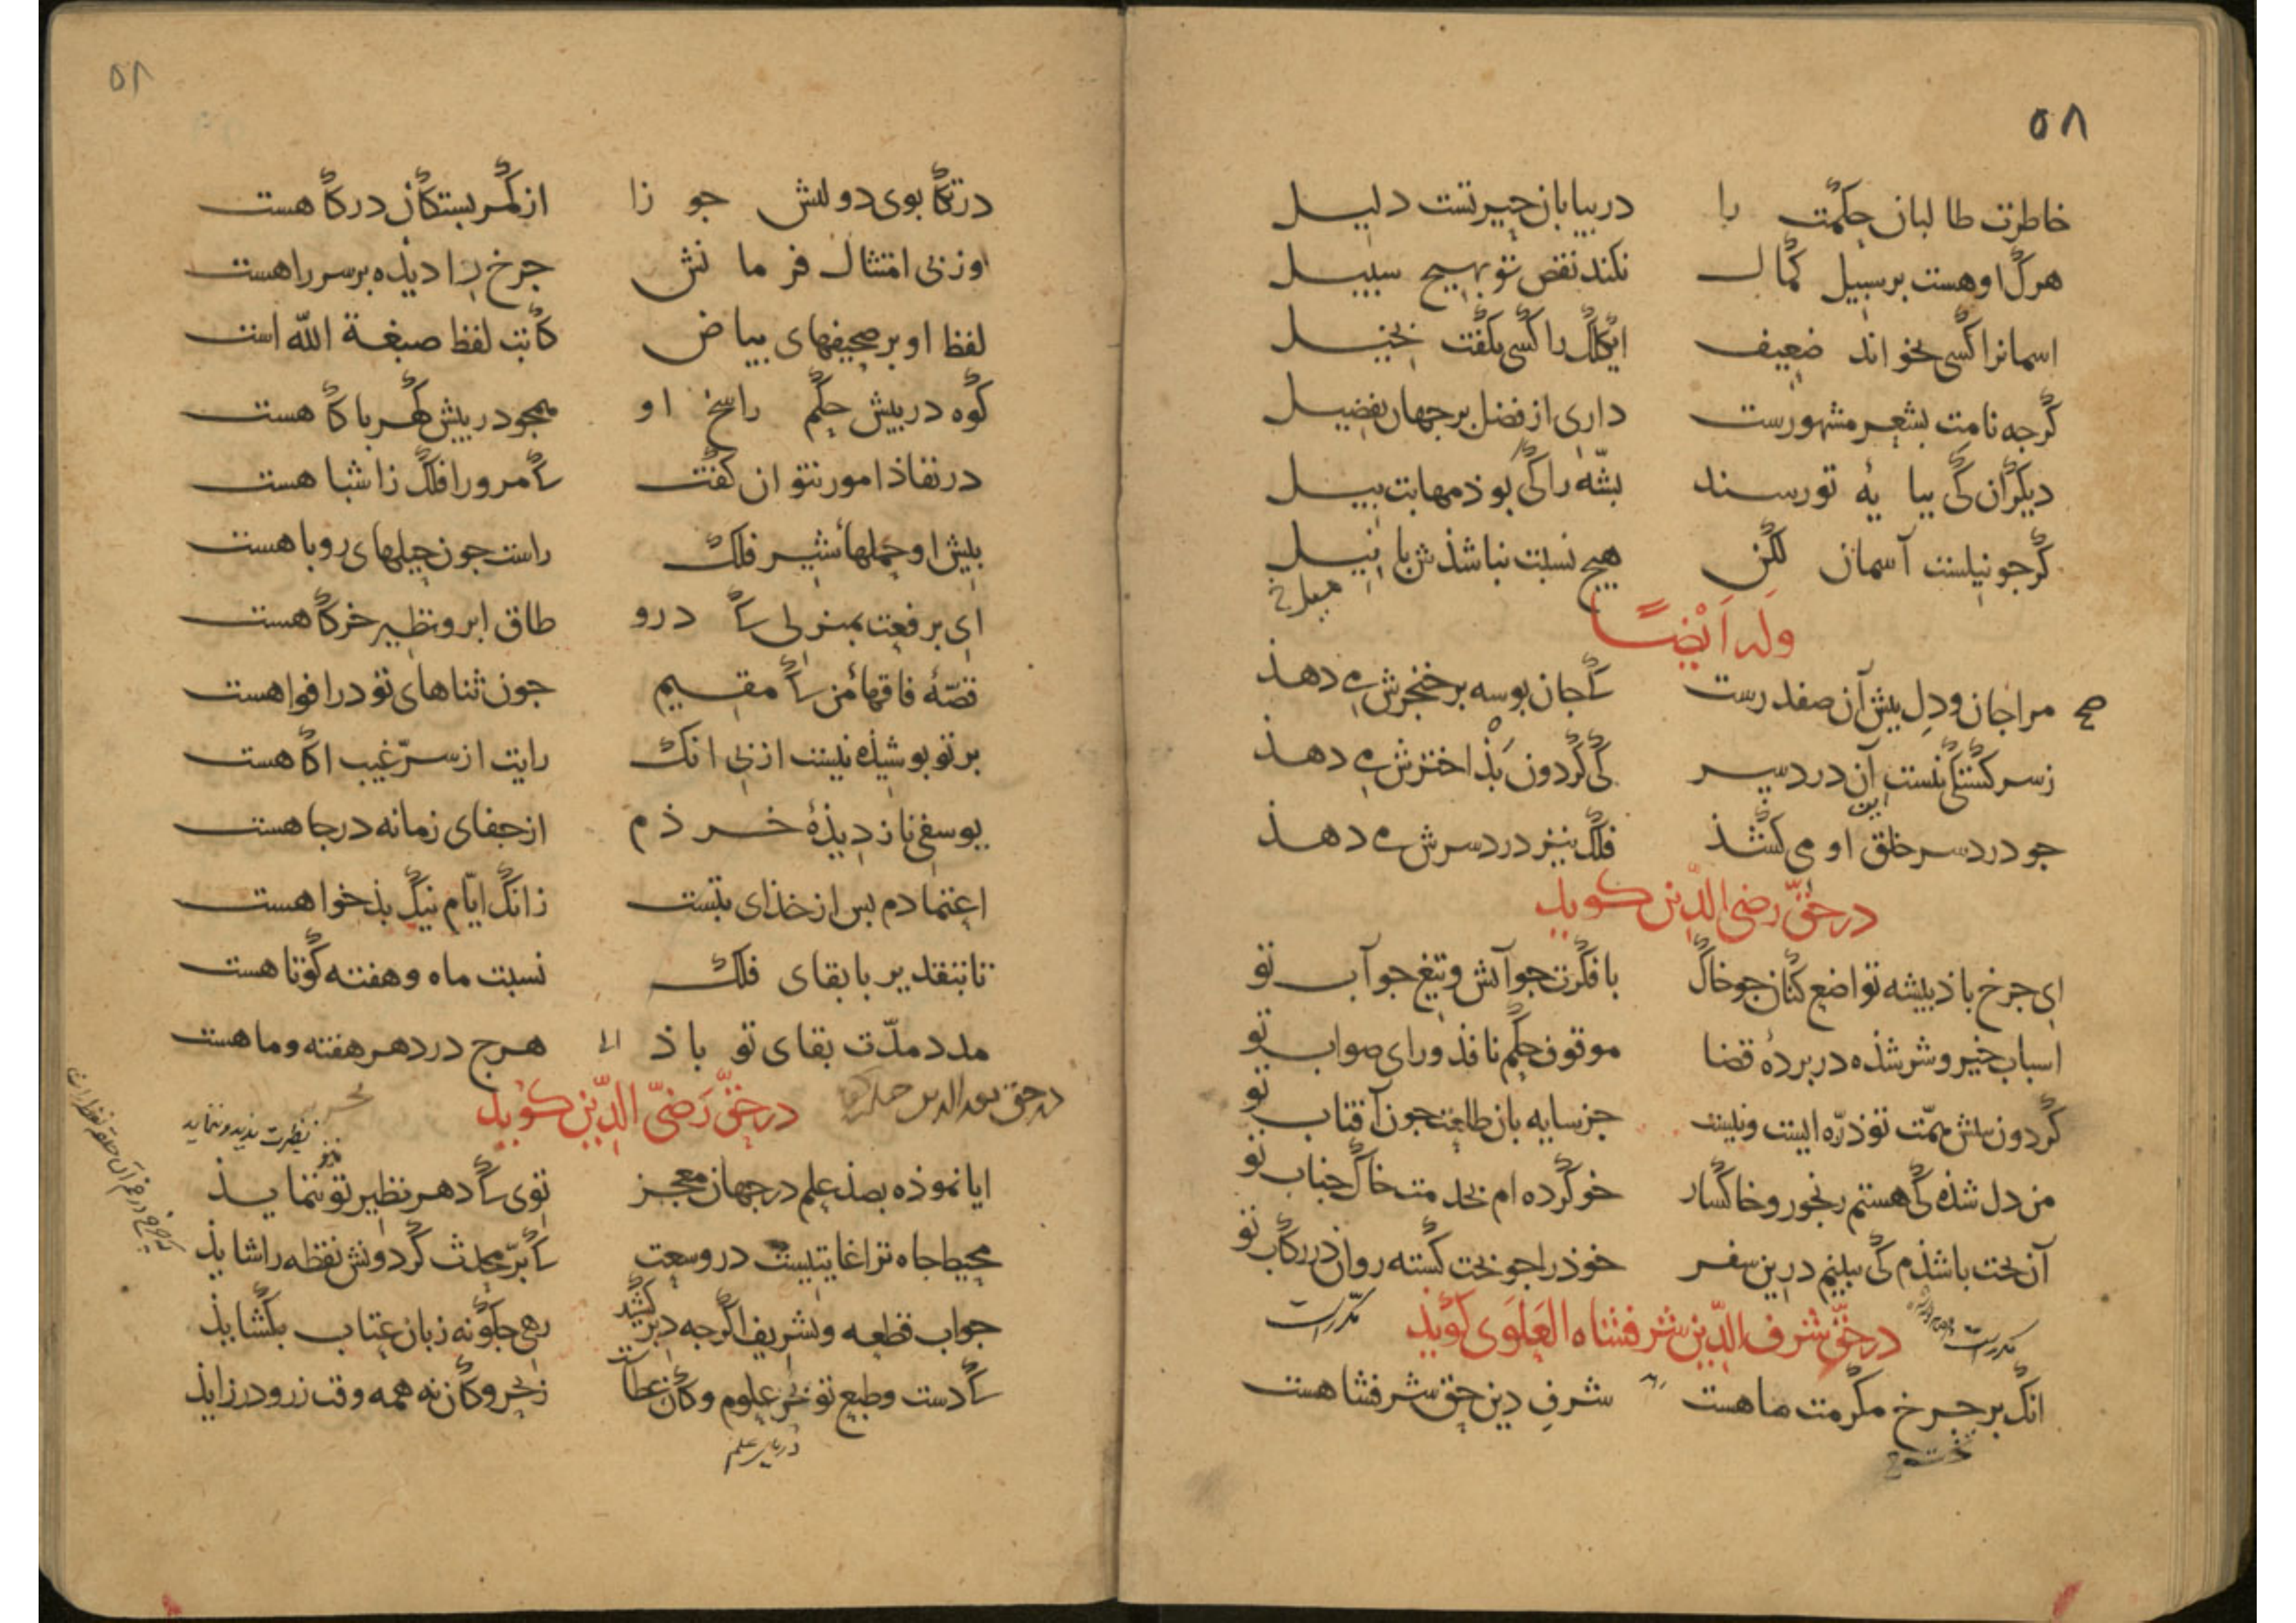 ۵۸
خاطرت طالبان حکمت را در بیابان حیرتست دلیل
هرک او هست بر سبیل کمال نکند نقص تو بهیچ سبیل
اسمانرا کسی نخواند ضعیف ابکلک را کسی نکفت بخیل
کرجه نامت بشعر مشهورست داری از فضل بر جهان تفضیل
دیکران کی بپایهٔ تو رسند بشّه را کی بوذ مهابت بیل
کرجو نیلست آسمان لکن هیچ نسبت نباشذش با نیل
وله ایضاً
صح مرا جان و دل بیش آن صفدرست کجان بوسه بر خنجرش می دهذ
ز سرکشتکی نیست آن دردسر کی کردون بذ اخترش می دهذ
این
جو دردسر خلق او می کشذ فلک نیز دردسرش می دهذ
در حقّ رضی الدّین کوید
ای جرخ باذ بیشه تواضع کنان جو خاک با فکرت جو آتش و تیغ جو آب تو
اسباب خیر و شر شذه در بردهٔ قضا موقوف حکم نافذ و رای صواب تو
کردون بیش همّت تو ذرّه ایست و نیست جز سایه بان طالعت جون آفتاب تو
من دل شذه کی هستم رنجور و خاکسار خو کرده ام بخدمت خاک جناب تو
آن بخت باشذم کی ببینم درین سفر خوذ را جو بخت کشته روان در رکاب تو
در حقّ شرف الدّین شرفشاه العلوی کویذ
مکررست
مکررست
انک بر جرخ مکرمت ماهست شرف دین حق شرفشاهست
۵۸
در تکابوی دولتش جوزا از کمربستکان درکاهست
وز بی امتثال فرمانش جرخ را دیذه بر سر راهست
لفظ او بر صحیفهای بیاض کاتب لفظ صبغة اللّه است
کوه در بیش حکم راسخ او همجو در بیش کهربا کاهست
در نفاذ امور نتوان کفت کامر ورا فلک زا شباهست
بیش او حملهاء شیر فلک راست جون حیلهای روباهست
ای برفعت بمنزلی ک درو طاق ابرو نظیر خرکاهست
قصّهٔ فاقهاء من ک مقیم جون ثناهای تو در افواهست
بر تو بوشیذه نیست از بی انک رایت از سرّ غیب اکاهست
یوسفی ناز دیذهٔ خردم از جفای زمانه در جاهست
اعتمادم بس از خذای بتست زانک ایّام نیک بذخواهست
تا بتقدیر با بقای فلک نسبت ماه و هفته کوتاهست
مدد مدّت بقای تو باذ هرج در دهر هفته و ماهست
در حقّ رضیّ الدّین کوید
نظیرت ندید و ننماید
ایا نموذه بصذ علم در جهان معجز توی ک دهر نظیر تو ننمایذ
محیط جاه ترا غایتیست در وسعت ک برّ محدث کردونش نقطه را شایذ
جواب قطعه و تشریف اکرجه دیر کشید رهی جکونه زبان عتاب بکشایذ
ک دست و طبع تو بحر علوم و کان عطاست ز بحر و کان نه همه وقت زر و در زایذ
دریای علم